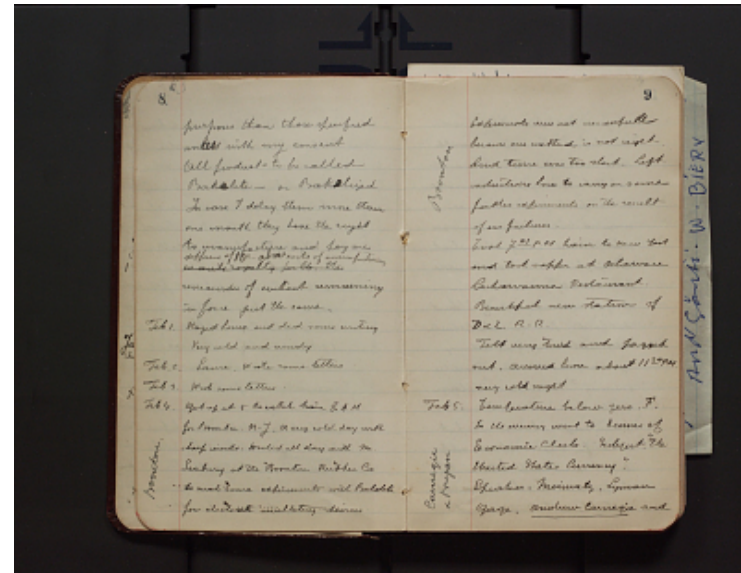 8
purposes than those specified
unless with my consent
Call product to be called
Bakelite or Bakelized
In case I delay them more than
one month they have the right
to manufacture and pay me
royalty the
remainder of contract remaining
in force just the same.
Feb 1. Stayed home and did some writing
Very cold and windy
Feb. 2. Same. Wrote some letters
Feb 3. Wrote some letters.
Feb 4. Got up at 5 to catch train 8 AM
for Boonton. N.J. A very cold day with
sharp winds. Worked all day with Mr
Seabury at the Boonton Rubber Co
to make some experiments with Bakelite
for electric insulating devices
Boonton.
9
Experiments were not successful
because our method is not right.
And time was too short. Left
instructions how to carry on some
further experiments on the result
of our failures.
Took 7 PM train to New York
and took supper at Delaware
Lackawanna Restaurant.
Beautiful new station of
D & L. R.R.
Felt very tired and fagged
out. arrived home about 11 PM
very cold night
Boonton
Feb 5. Temperature below zero. F.
In the evening went to dinner of
Economic Club. Subject: The
United States Currency.
Speakers: Lyman
Gage, Andrew Carnegie and
Carnegie
& Bryan
W. BIERY